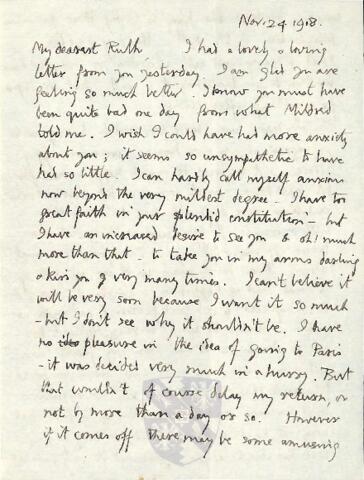 Nov. 24 1918.
My dearest Ruth I had a lovely & loving
letter from you yesterday. I am glad you are
feeling so much better. I know you must have
been quite bad one day from what Mildred
told me. I wish I could have had more anxiety
about you; it seems so unsympathetic to have
had so little. I can hardly call myself anxious
now beyond the very mildest degree. I have too
great faith in your splendid constitution – but
I have an increased desire to see you & oh! much
more than that – to take you in my arms darling
& kiss you very many times. I can't believe it
will be very soon because I want it so much
– but I don't see why it shouldn't be. I have
no pleasure in the idea of going to Paris
– it was decided very much in a hurry. But
that wouldn't of course delay my return, or
not by more than a day or so. However
if it comes off there may be some amusing